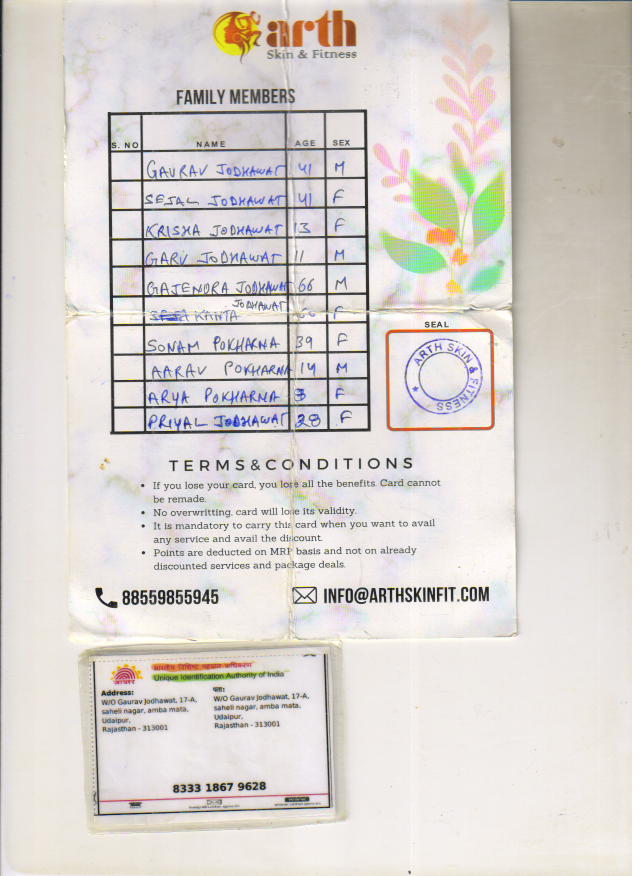 arth
Skin & Fitness
FAMILY MEMBERS
S. NO NAME AGE SEX
GAURAV JODHAWAT 41 M
SEJAL JODHAWAT 41 F
KRISHA JODHAWAT 13 F
GARV JODHAWAT 11 M
GAJENDRA JODHAWAT 66 M
JODHAWAT
KANTA 66 F
SONAM POKHARNA 39 F
AARAV POKHARNA 14 M
ARYA POKHARNA 3 F
PRIYAL JODHAWAT 28 F
SEAL
ARTH SKIN & FITNESS
TERMS&CONDITIONS
• If you lose your card, you lose all the benefits. Card cannot
be remade.
• No overwritting, card will lose its validity.
• It is mandatory to carry this card when you want to avail
any service and avail the discount.
• Points are deducted on MRP basis and not on already
discounted services and package deals.
88559855945 INFO@ARTHSKINFIT.COM
भारतीय विशिष्ट पहचान प्राधिकरण
Unique Identification Authority of India
Address:
W/O Gaurav Jodhawat, 17-A,
saheli nagar, amba mata,
Udaipur,
Rajasthan - 313001
पता:
W/O Gaurav Jodhawat, 17-A,
saheli nagar, amba mata,
Udaipur,
Rajasthan - 313001
8333 1867 9628